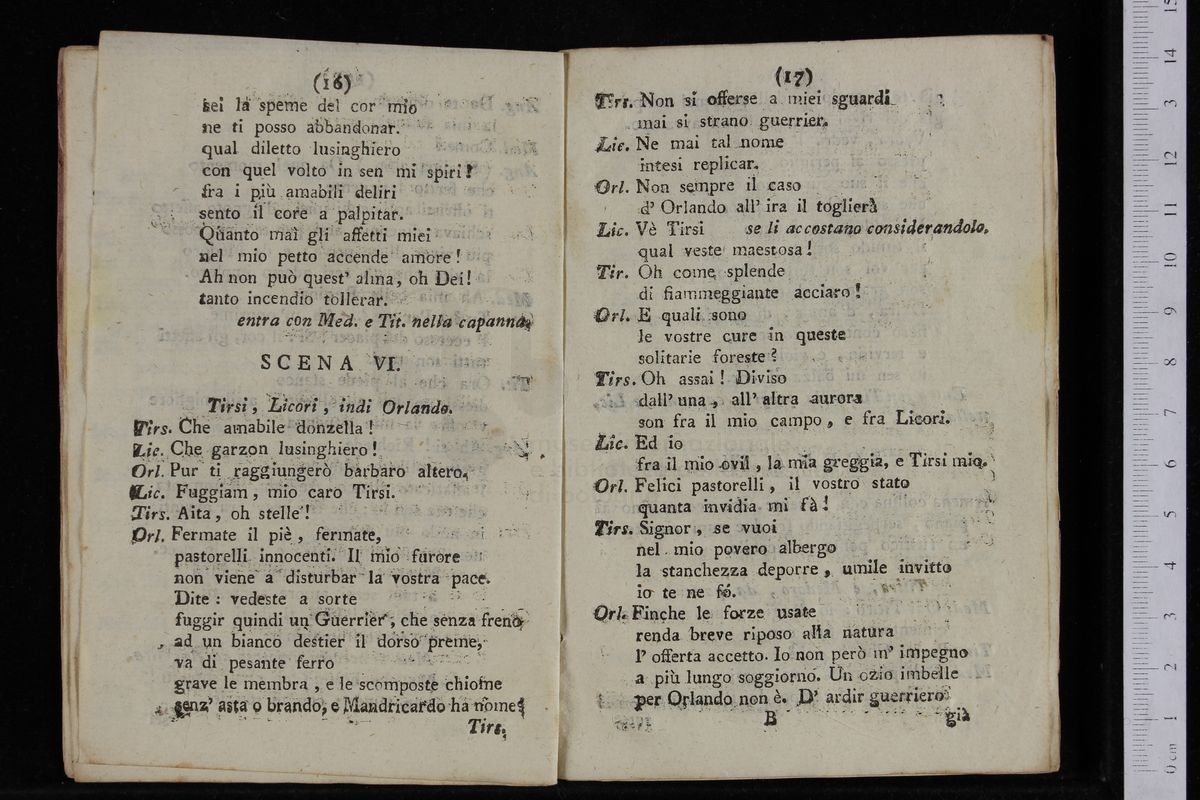 (16)
sei la speme del cor mio
ne ti posso abbandonar.
qual diletto lusinghiero
con quel volto in sen mi spiri!
fra i più amabili deliri
sento il core a palpitar.
Quanto mai gli affetti miei
nel mio petto accende amore!
Ah non può quest' alma, oh Dei!
tanto incendio tollerar.
entra con Med. e Tit. nella capanna.
SCENA VI.
Tirsi, Licori, indi Orlando.
Tirs. Che amabile donzella!
Lic. Che garzon lusinghiero!
Orl. Pur ti raggiungerò barbaro altero.
Lic. Fuggiam, mio caro Tirsi.
Tirs. Aita, oh stelle!
Orl. Fermate il piè, fermate,
pastorelli innocenti. Il mio furore
non viene a disturbar la vostra pace.
Dite: vedeste a sorte
fuggir quindi un Guerrier, che senza freno
ad un bianco destier il dorso preme,
va di pesante ferro
grave le membra, e le scomposte chiome
senz' asta o brando, e Mandricardo ha nome?
Tirs.
(17)
Tirs. Non si offerse a miei sguardi
mai si strano guerrier.
Lic. Ne mai tal nome
intesi replicar.
Orl. Non sempre il caso
d' Orlando all' ira il toglierà
Lic. Vè Tirsi se li accostano considerandolo.
qual veste maestosa!
Tir. Oh come splende
di fiammeggiante acciaro!
Orl. E quali sono
le vostre cure in queste
solitarie foreste?
Tirs. Oh assai! Diviso
dall' una, all' altra aurora
son fra il mio campo, e fra Licori.
Lic. Ed io
fra il mio ovil, la mia greggia, e Tirsi mio.
Orl. Felici pastorelli, il vostro stato
quanta invidia mi fà!
Tirs. Signor, se vuoi
nel mio povero albergo
la stanchezza deporre, umile invitto
io te ne fó.
Orl. Finche le forze usate
renda breve riposo alla natura
l' offerta accetto. Io non però m' impegno
a più lungo soggiorno. Un ozio imbelle
per Orlando non è. D' ardir guerriero
B già